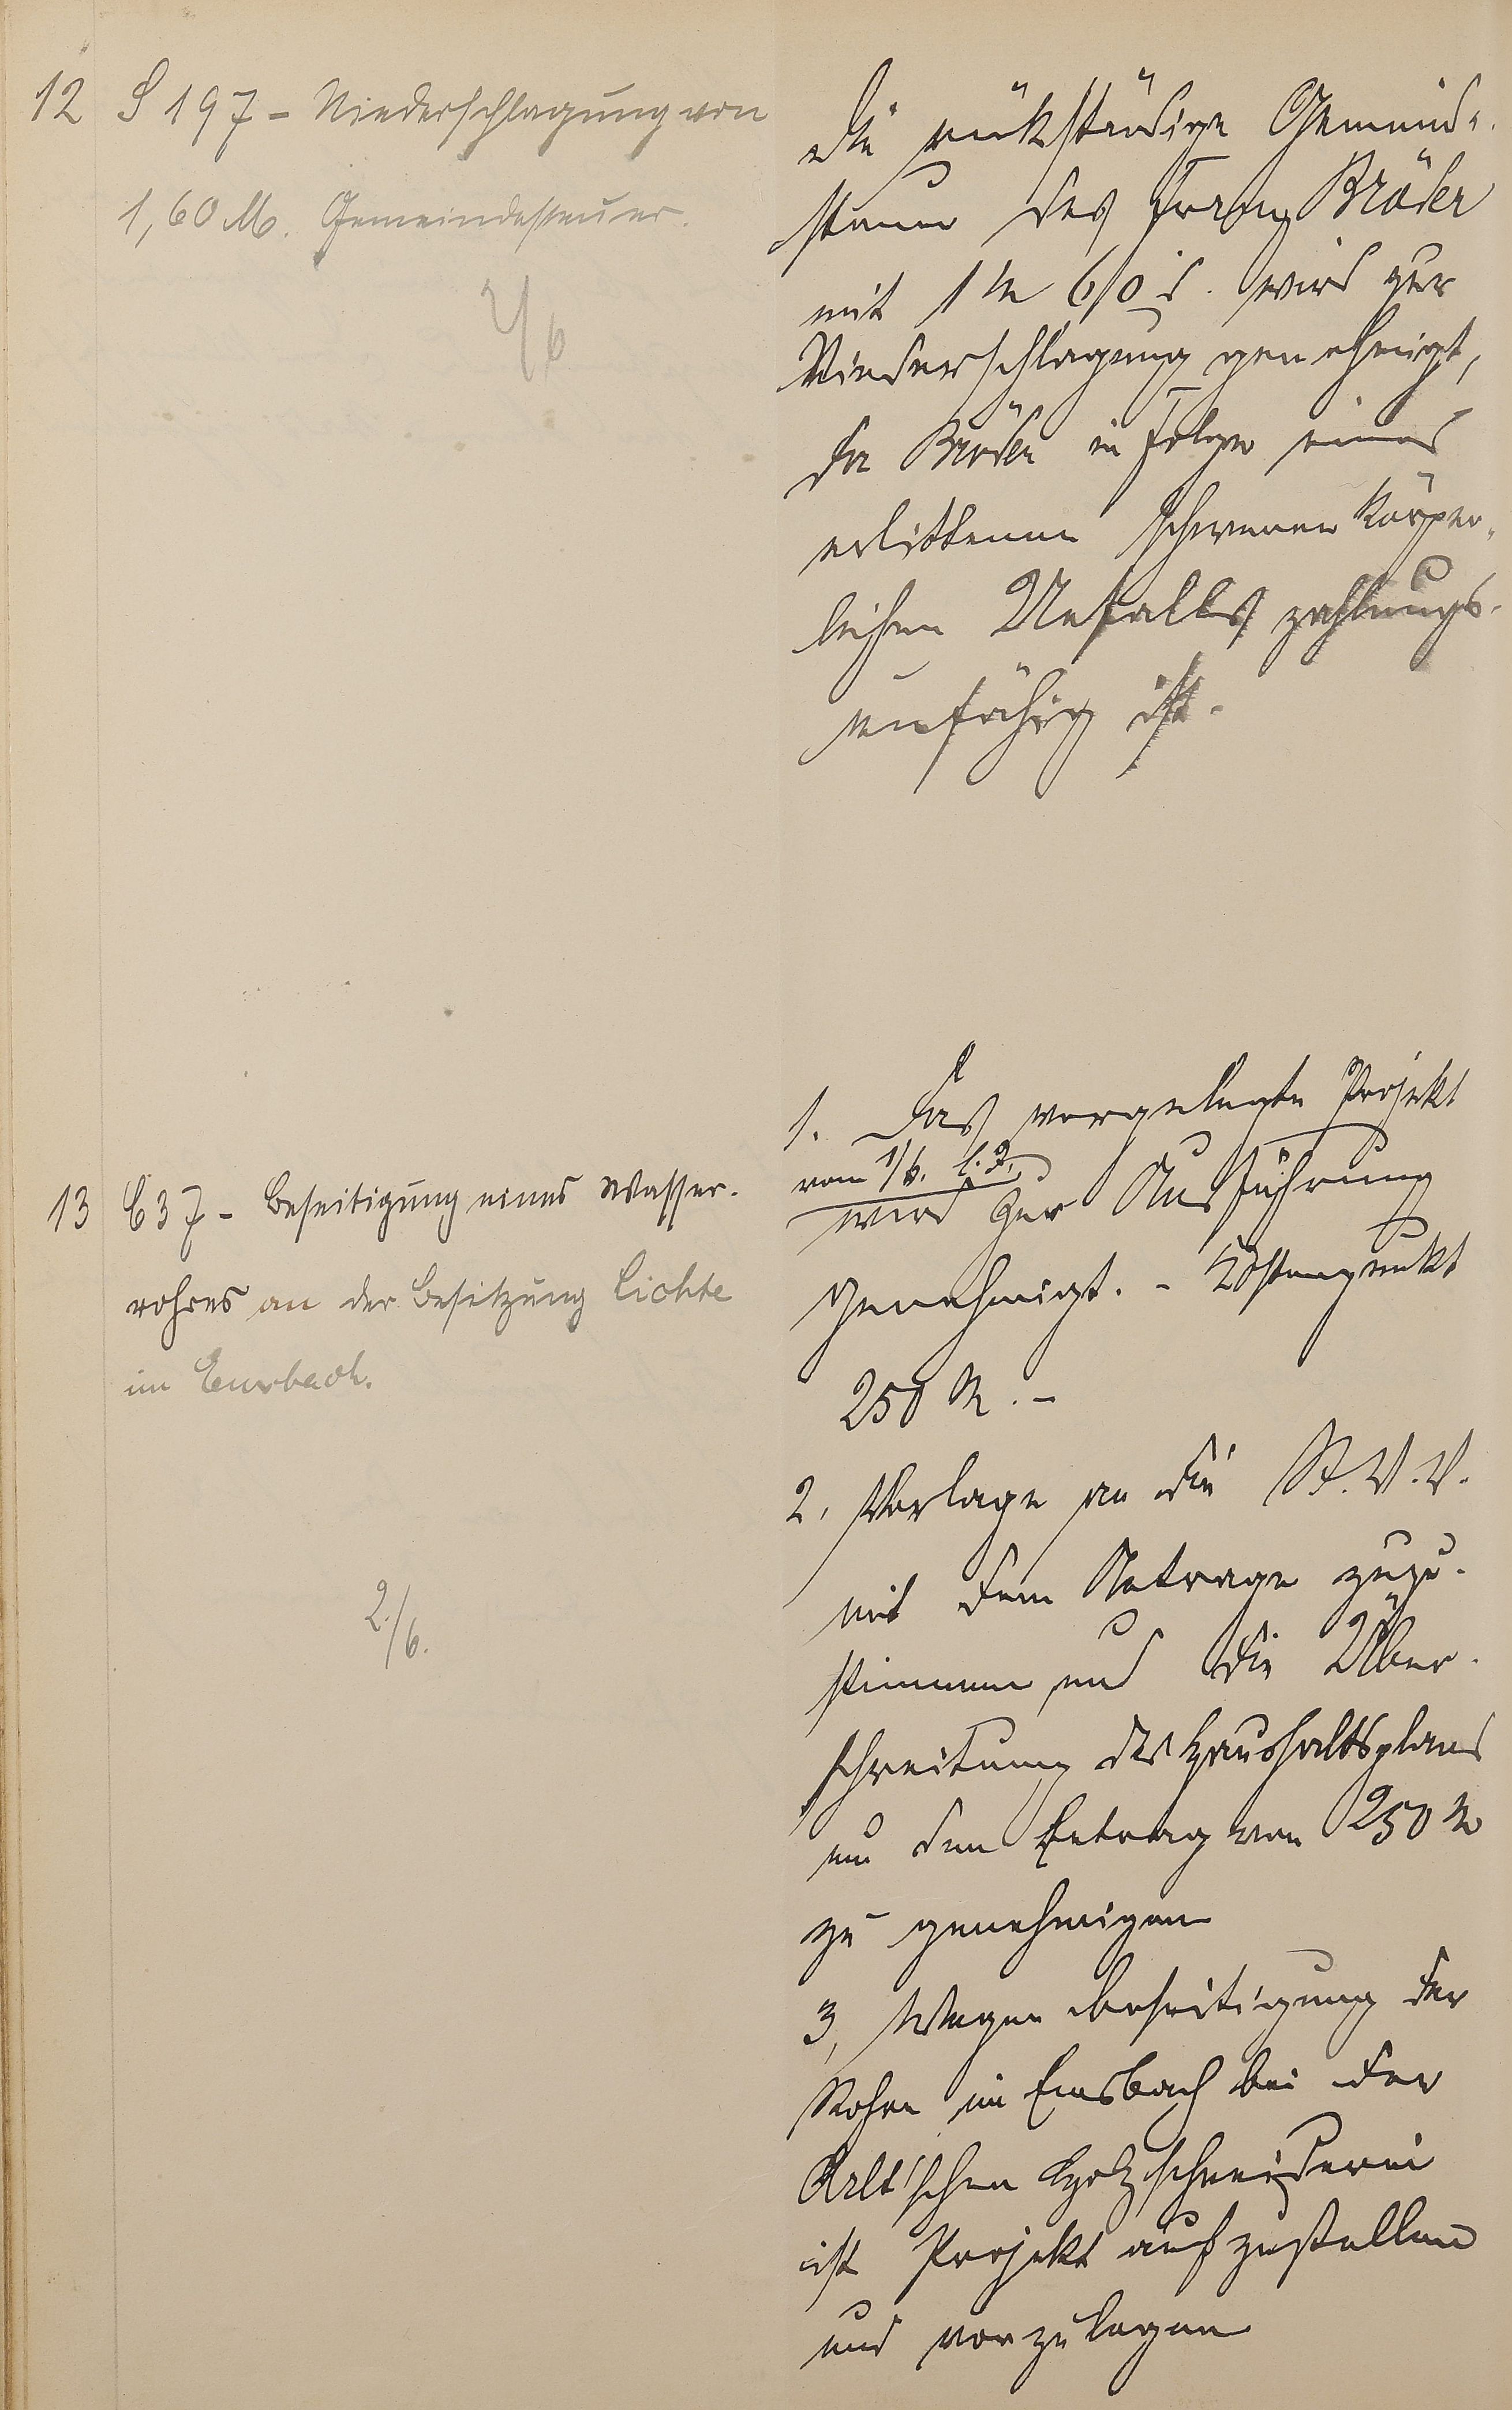 12 S 197 - Niederschlagung von
1,60 M. Gemeindesteuer.
2/6
die rükständige Gemeinde-
steuer des Franz Bröder
mit 1 M 60 d. wird zur
Niederschlagung genehmigt,
da Bröder in Folge eines
erlittenen schweren körper-
lichen Unfalls zahlungs-
unfähig ist.
13 C 37 - Beseitigung eines Wasser-
rohres an der Besitzung Lichte
im Emsbach.
2./6.
1. Das vorgelegte Projekt
vom 1/6. l. J.
wird zur Ausführung
genehmigt. - Kostenpunkt
250 M. -
2. Vorlage an die St. V. V.
mit dem Antrage zuzu-
stimmen und die Über-
schreitung des Haushaltsplans
um den Betrag von 250 M
zu genehmigen
3, Wegen Beseitigung der
Rohre im Emsbach bei der
Arlt'schen Holzschneiderei
ist Projekt aufzustellen
und vorzulegen